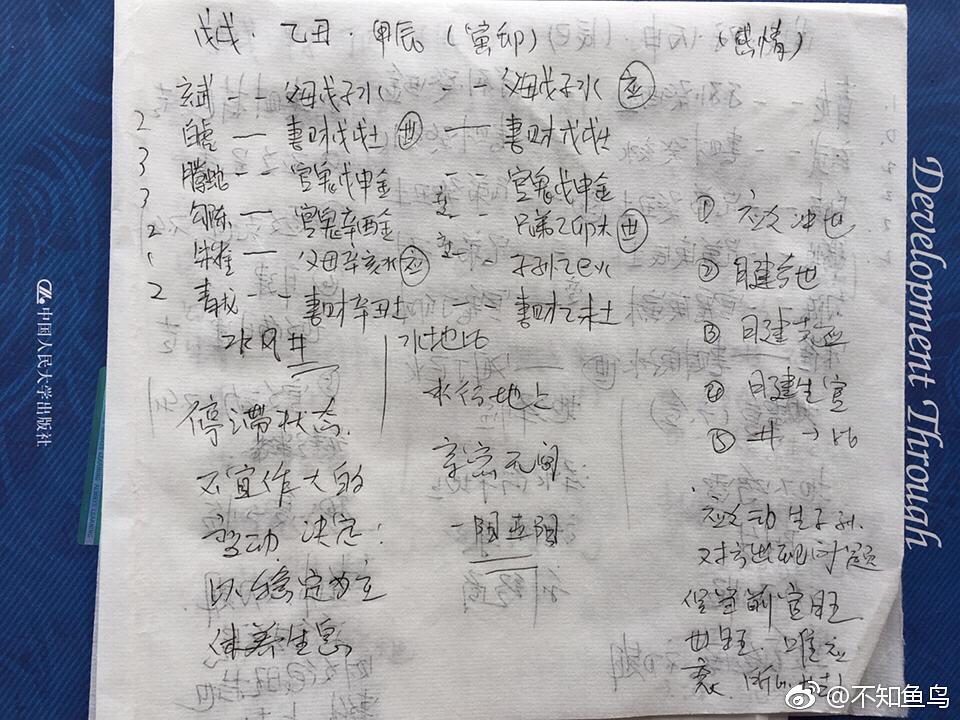 戊戌·乙丑·甲辰(寅卯) (感情)
玄武 -- 父母戊子水 -- 父母戊子水 应
2 白虎 — 妻财戊戌土 世 — 妻财戊戌土
3 腾蛇 -- 官鬼戊申金 -- 官鬼戊申金
3 勾陈 — 官鬼辛酉金 -- 兄弟乙卯木 世
2 朱雀 — 父母辛亥水 应 -- 子孙乙巳火
2 青龙 -- 妻财辛丑土 妻财乙未土
水风井 水地比
停滞状态.
不宜作大的
变动 决定:
以稳定为主
休养生息
水行地上
亲密无间
① 应爻冲世
② 日建合世
③ 日建克应
④ 日建生官
⑤ 井→比
应爻动生子孙.
对方出现问题
官旺
世旺. 唯应
衰.
中国人民大学出版社
Development Through
@不知鱼鸟